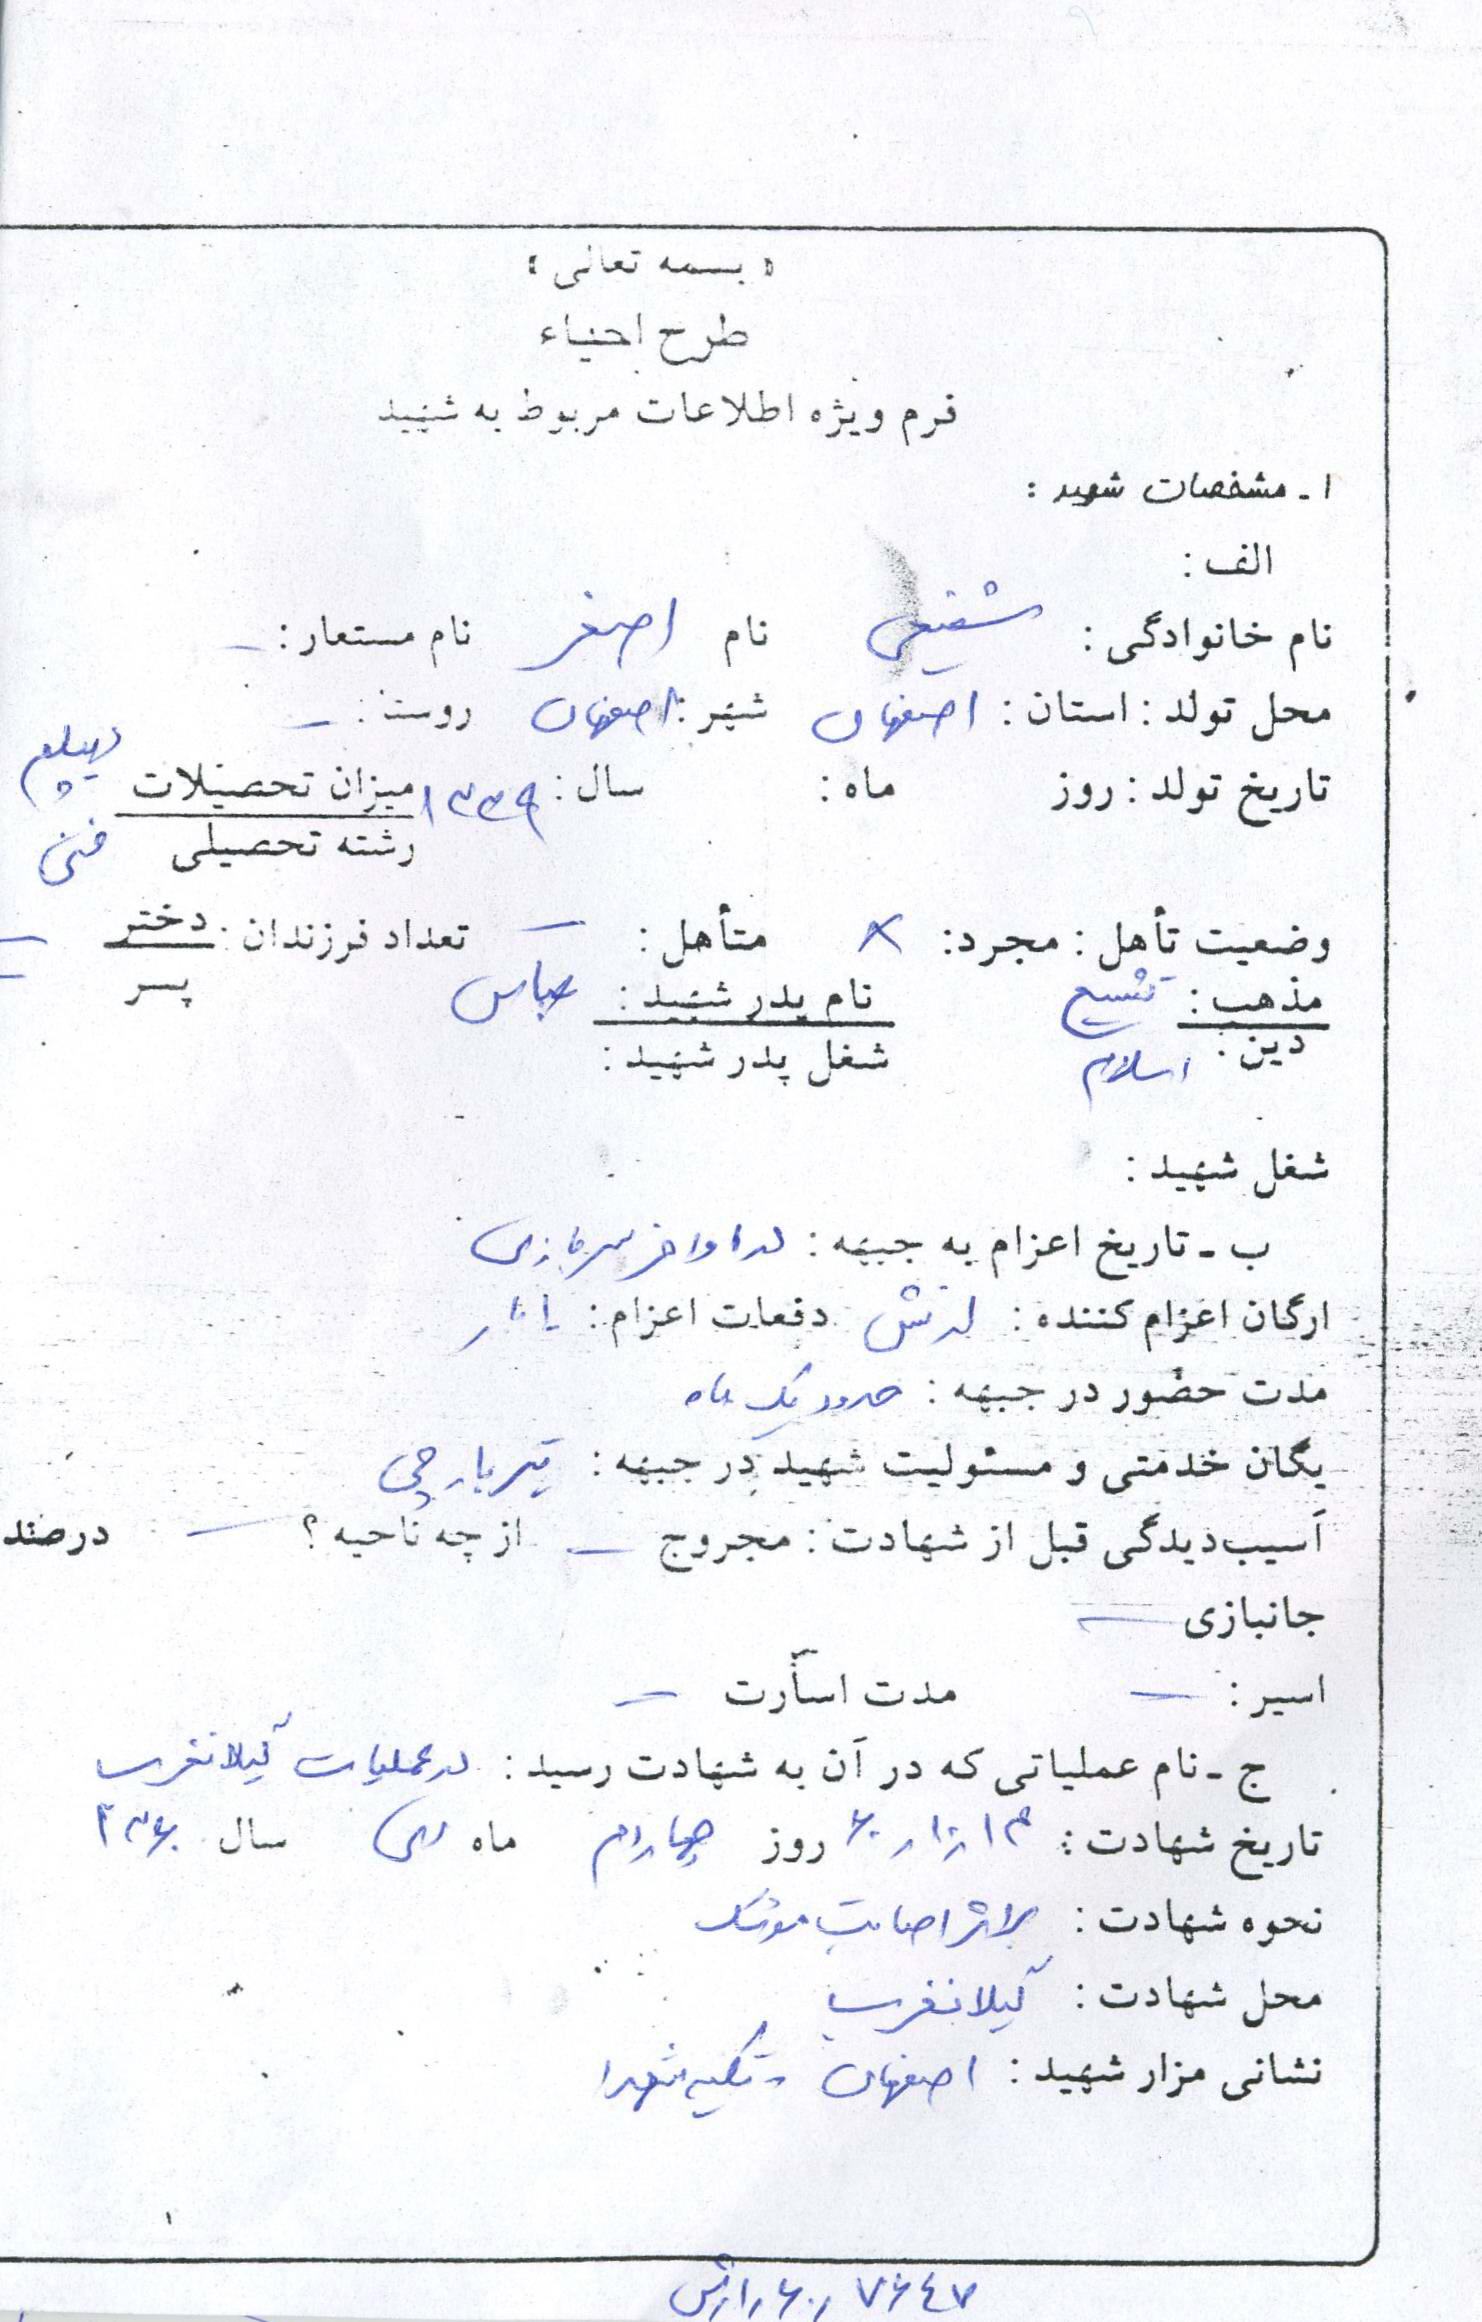 « بسمه تعالی »
طرح احیاء
فرم ویژه اطلاعات مربوط به شهید
۱ ـ مشخصات شهید :
الف :
نام خانوادگی : شفیعی نام اصغر نام مستعار : ـ
محل تولد : استان : اصفهان شهر : اصفهان روستا : ـ
تاریخ تولد : روز ماه : سال : ۱۳۳۹ میزان تحصیلات دیپلم
رشته تحصیلی فنی
وضعیت تأهل : مجرد : × متأهل : ـ تعداد فرزندان : دختر ـ
پسر ـ
مذهب : تشیع نام پدر شهید : عباس
دین : اسلام شغل پدر شهید :
شغل شهید :
ب ـ تاریخ اعزام به جبهه : در اواخر سربازی
ارگان اعزام کننده : ارتش دفعات اعزام :
مدت حضور در جبهه : حدود یک ماه
یگان خدمتی و مسئولیت شهید در جبهه : تیربارچی
آسیب‌دیدگی قبل از شهادت : مجروح ـ از چه ناحیه ؟ ـ درصد
جانبازی ـ
اسیر : ـ مدت اسارت ـ
ج ـ نام عملیاتی که در آن به شهادت رسید : در عملیات گیلانغرب
تاریخ شهادت : روز چهارم ماه دی سال ۱۳۶۰
نحوه شهادت : بر اثر اصابت موشک
محل شهادت : گیلانغرب
نشانی مزار شهید : اصفهان - تکیه شهدا